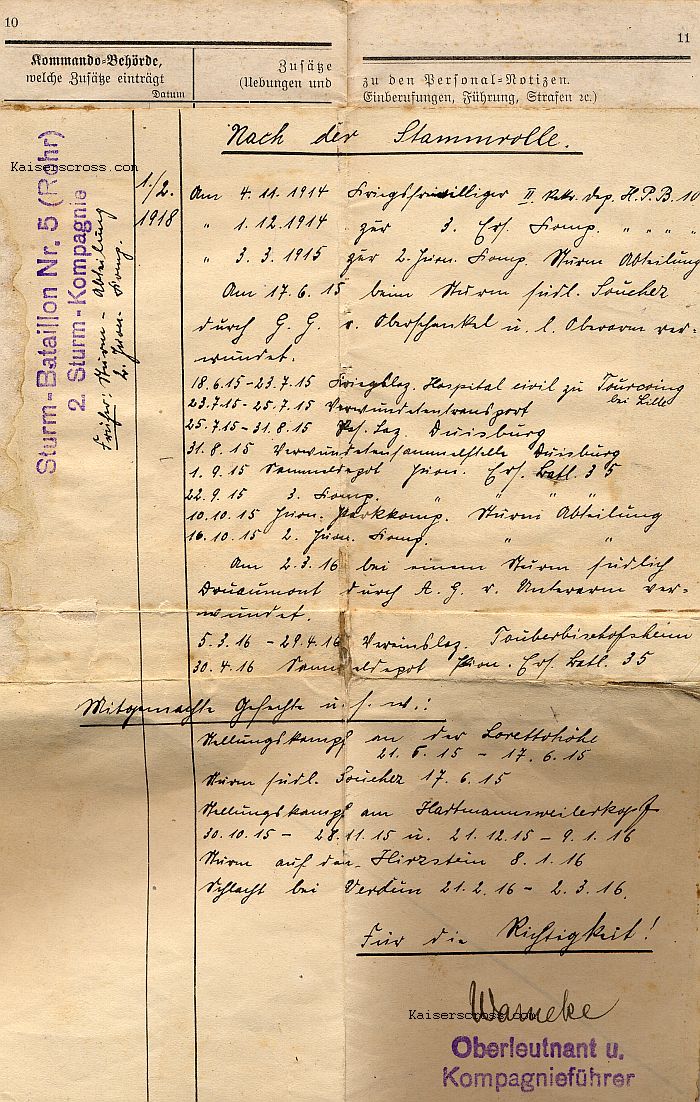 10
11
Kommando-Behörde,
welche Zusätze einträgt
Datum
Zusätze
(Uebungen und
zu den Personal-Notizen.
Einberufungen, Führung, Strafen ꝛc.)
Kaiserscross.com
Sturm-Bataillon Nr. 5 (Rohr)
2. Sturm-Kompagnie
Früher: Sturm-Abteilung
2. Pion. Komp.
1./2.
1918
Nach der Stammrolle.
Am 4.11.1914 Kriegsfreiwilliger II. Rekr. dep. H.P.B. 10
" 1.12.1914 zur 3. Ers. Komp. " " " "
" 3.3.1915 zur 2. Pion. Komp. Sturm Abteilung
Am 17.6.15 beim Sturm südl. Souchez
durch G. G. r. Oberschenkel u. l. Oberarm ver-
wundet.
18.6.15-23.7.15 Kriegslaz. Hospital civil zu Tourcoing
bei Lille
23.7.15-25.7.15 Verwundetentransport
25.7.15-31.8.15 Res. Laz. Duisburg
31.8.15 Verwundetensammelstelle Duisburg
1.9.15 Sammeldepot Pion. Ers. Batl. 35
22.9.15 3. Komp. " " " "
10.10.15 Pion. Parkkomp. Sturm Abteilung
16.10.15 2. Pion. Komp. " "
Am 2.3.16 bei einem Sturm südlich
Douaumont durch A. G. r. Unterarm ver-
wundet.
5.3.16 - 29.4.16 Vereinslaz. Tauberbischofsheim
30.4.16 Sammeldepot Pion. Ers. Batl. 35
Mitgemachte Gefechte u. s. w.:
Stellungskampf an der Lorettohöhe
21.5.15 - 17.6.15
Sturm südl. Souchez 17.6.15
Stellungskampf am Hartmannsweilerkopf
30.10.15 - 28.11.15 u. 21.12.15 - 9.1.16
Sturm auf den Hirzstein 8.1.16
Schlacht bei Verdun 21.2.16 - 2.3.16.
Für die Richtigkeit!
Warneke
Kaiserscross.com
Oberleutnant u.
Kompagnieführer